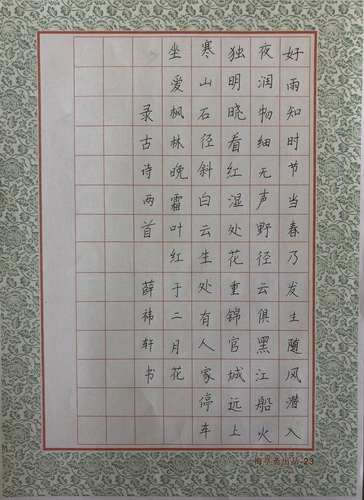 好雨知时节当春乃发生随风潜入
夜润物细无声野径云俱黑江船火
独明晓看红湿处花重锦官城远上
寒山石径斜白云生处有人家停车
坐爱枫林晚霜叶红于二月花
录古诗两首 薛祎轩书
出品-23